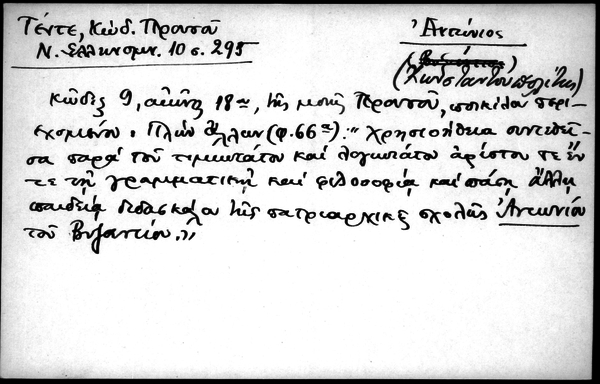 Γέντε, Κώδ. Προυσῶ
Ν. Ἑλληνομν. 10 σ. 295
Ἀντώνιος
(Κωνσταντινουπολίτης)
Κῶδιξ 9, αἰῶνος 18ου, τῆς μονῆς Προυσοῦ, ποικίλου περι-
εχομένου. Πλὴν ἄλλων (φ. 66α): "Χρησιοήθεια συντεθεῖ-
σα παρὰ τοῦ τιμιωτάτου καὶ λογιωτάτου ἀρίστου τε ἔν
τε τῇ γραμματικῇ καὶ φιλοσοφίᾳ καὶ πάσῃ ἄλλῃ
παιδείᾳ διδασκάλου τῆς πατριαρχικῆς σχολῆς Ἀντωνίου
τοῦ Βυζαντίου."